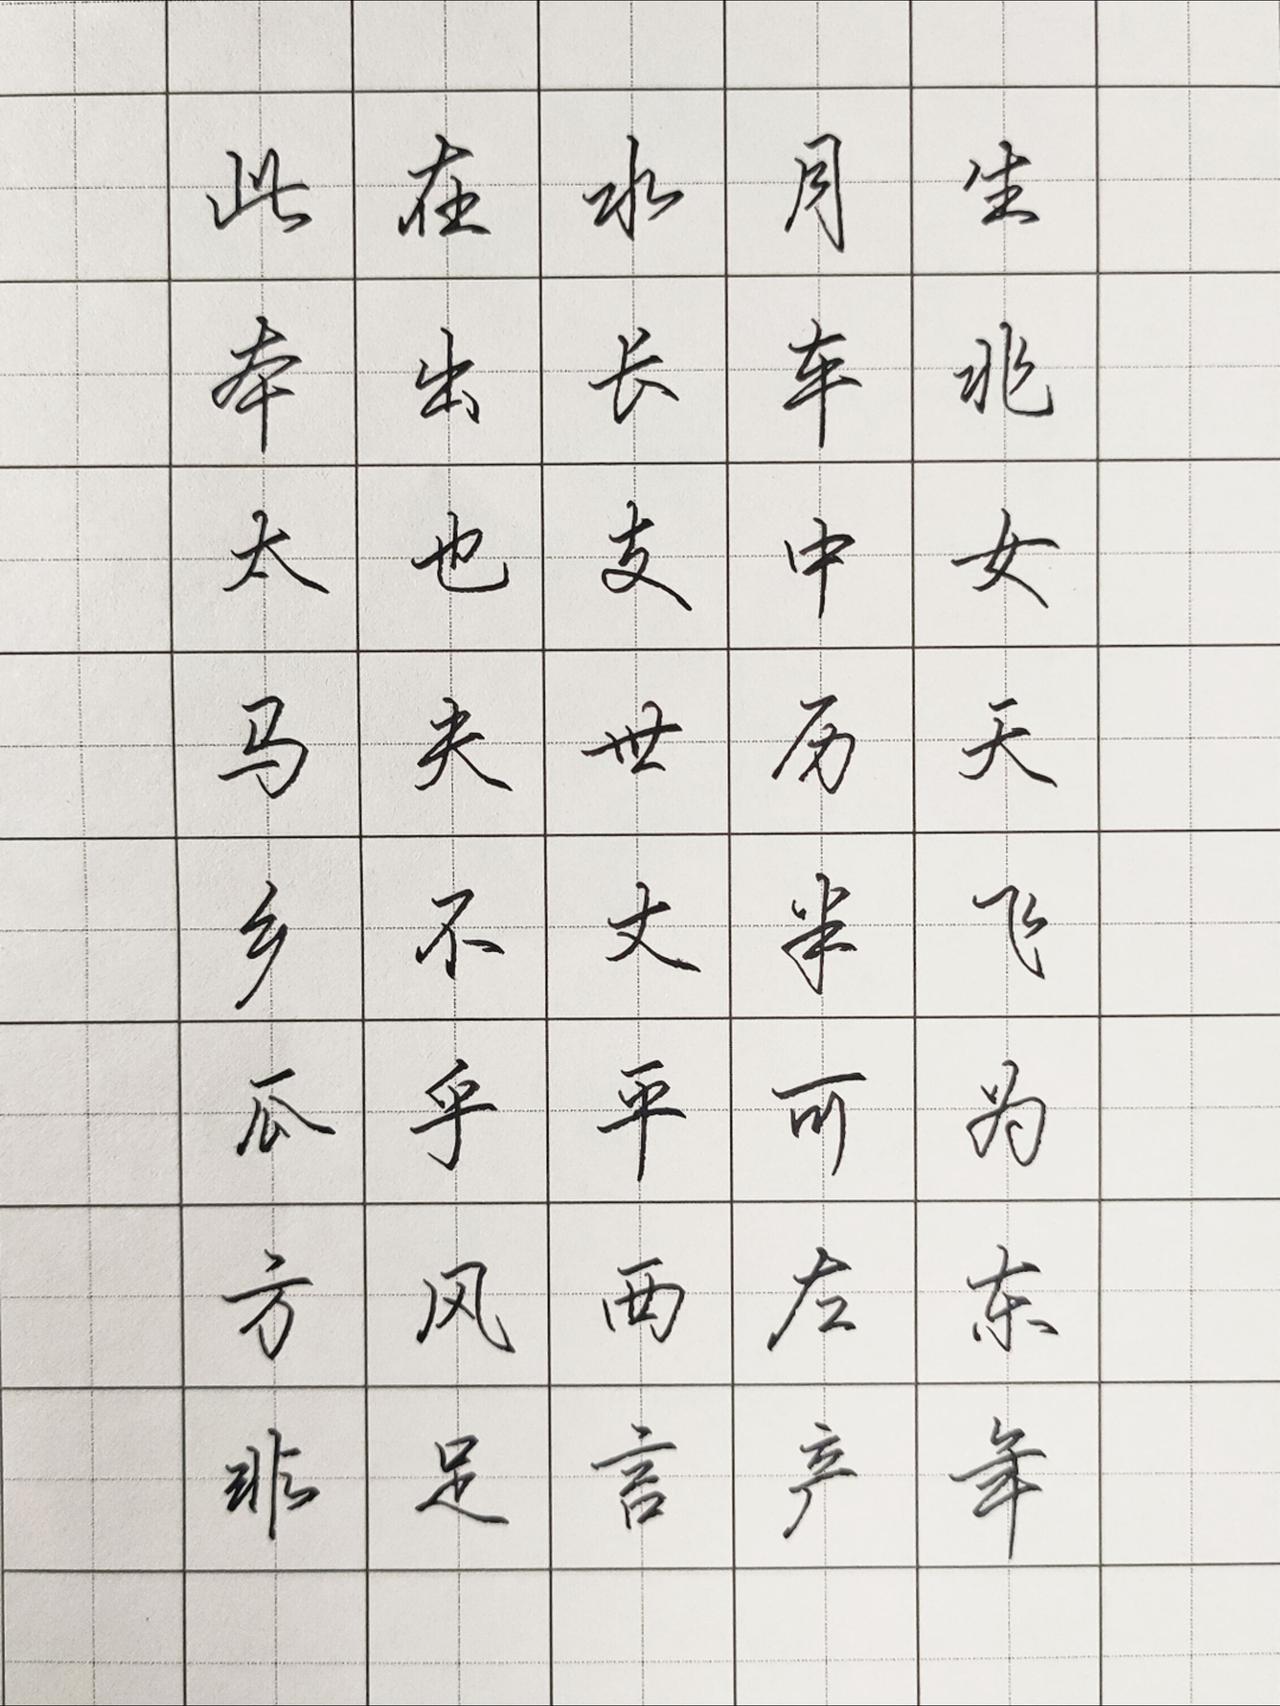 此在水月生
本出长车兆
太也支中女
马夫世历天
乡不丈半飞
瓜乎平可为
方风西左东
非足言产年